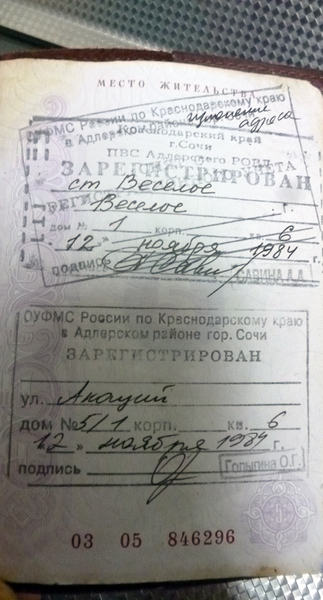 МЕСТО ЖИТЕЛЬСТВА
ОУФМС России по Краснодарскому краю
в Адлерском районе
изменение адреса
Краснодарский край
г.Сочи
ПВС Адлерского РОВД
ЗАРЕГИСТРИРОВАН
ст Веселое
Веселое г.
дом № 1 корп. 6
"12" ноября 1984
подпись
САВИНА А.А.
ОУФМС России по Краснодарскому краю
в Адлерском районе гор. Сочи
ЗАРЕГИСТРИРОВАН
ул. Акаций
дом № 5/1 корп. кв. 6
"12" ноября 1984 г.
подпись Голыгина О.Г.
03 05 846296